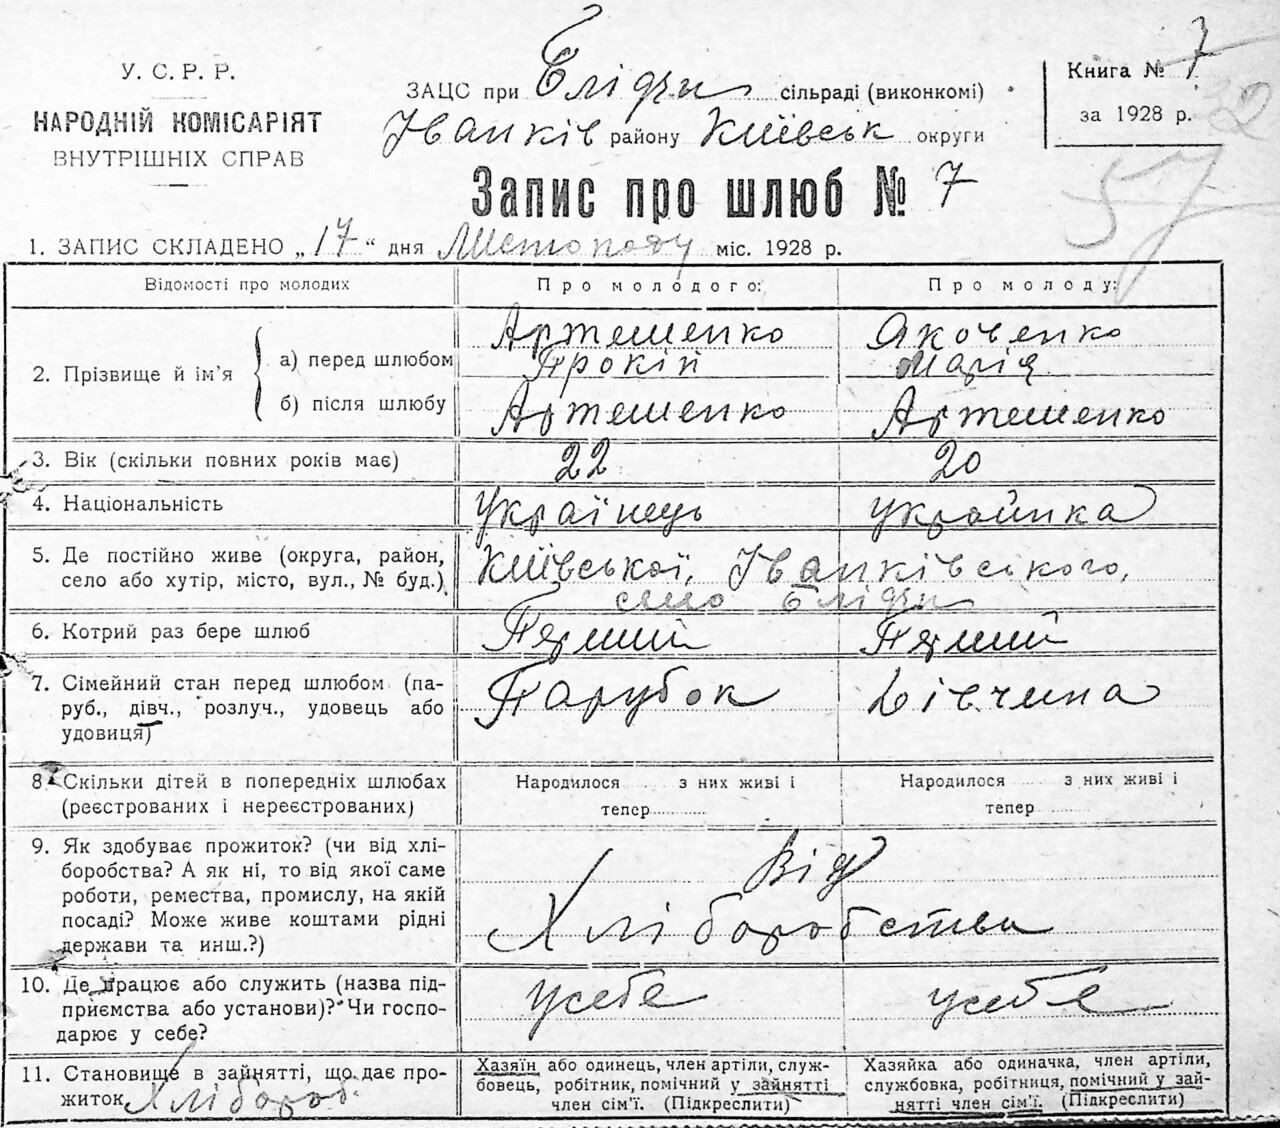 У. С. Р. Р.
НАРОДНІЙ КОМІСАРІЯТ
ВНУТРІШНІХ СПРАВ
ЗАЦС при Блідчи сільраді (виконкомі)
Іванків району Київськ округи
Книга № 7
за 1928 р.
32
57
Запис про шлюб № 7
1. ЗАПИС СКЛАДЕНО „17“ дня Листопаду міс. 1928 р.
Відомості про молодих
Про молодого:
Про молоду:
2. Прізвище й ім'я
а) перед шлюбом
Артеменко
Прокіп
Яковенко
Марія
б) після шлюбу
Артеменко
Артеменко
3. Вік (скільки повних років має)
22
20
4. Національність
Українець
Українка
5. Де постійно живе (округа, район,
село або хутір, місто, вул., № буд.)
Київської, Іванківського,
село Блідчи
6. Котрий раз бере шлюб
Перший
Перший
7. Сімейний стан перед шлюбом (па-
руб., дівч., розлуч., удовець або
удовиця)
Парубок
Дівчина
8. Скільки дітей в попередніх шлюбах
(реєстрованих і нереєстрованих)
Народилося з них живі і
тепер
Народилося з них живі і
тепер
9. Як здобуває прожиток? (чи від хлі-
боробства? А як ні, то від якої саме
роботи, ремества, промислу, на якій
посаді? Може живе коштами рідні
держави та инш.?)
Від
Хліборобства
10. Де працює або служить (назва під-
приємства або установи)? Чи госпо-
дарює у себе?
усебе
усебе
11. Становище в зайнятті, що дає про-
житок Хлібороб.
Хазяїн або одинець, член артілі, служ-
бовець, робітник, помічний у зайнятті
член сім'ї. (Підкреслити)
Хазяйка або одиначка, член артілі,
службовка, робітниця, помічний у зай-
нятті член сім'ї. (Підкреслити)